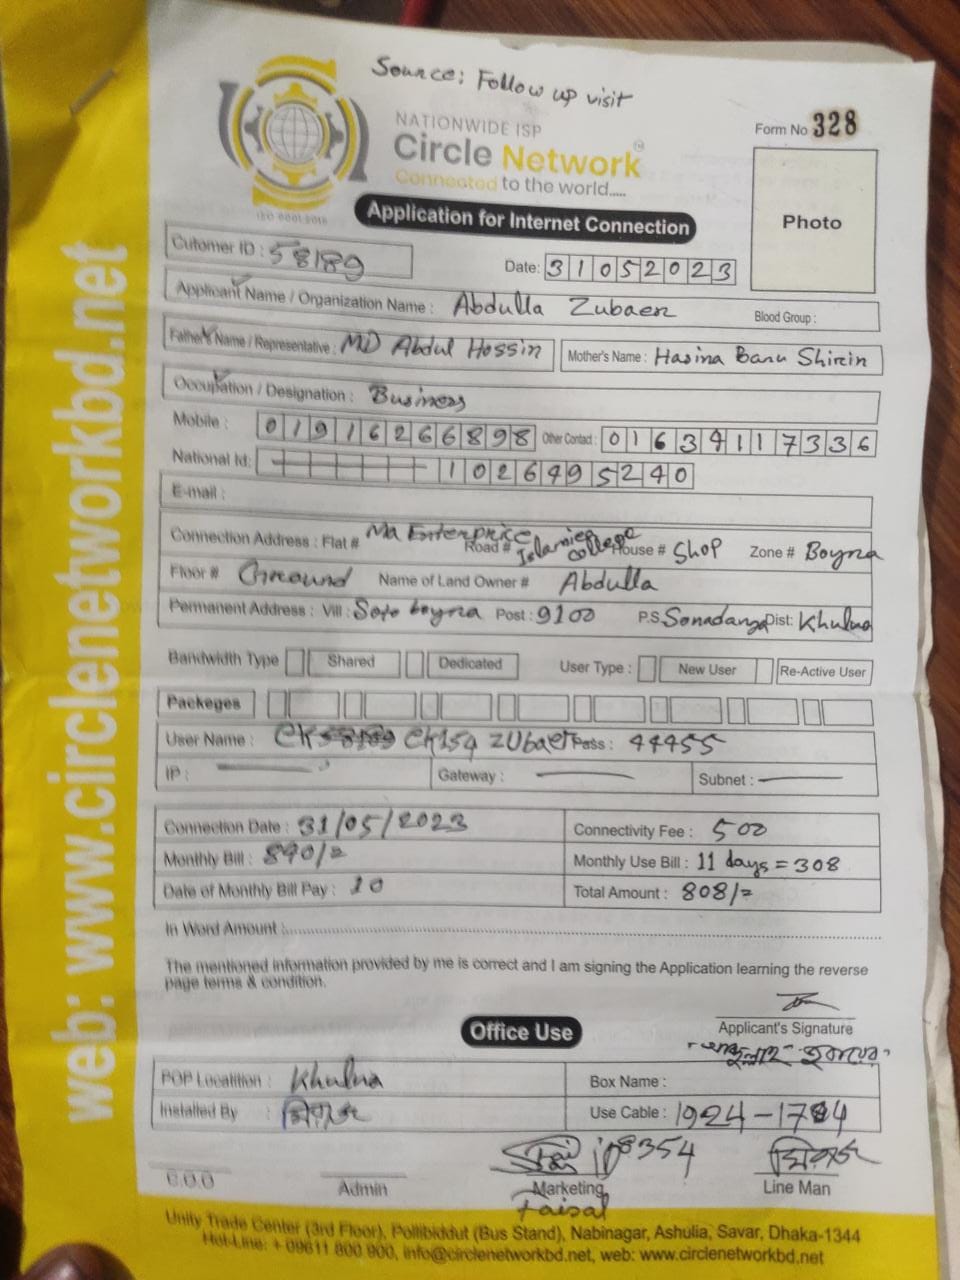 Source: Follow up visit
NATIONWIDE ISP
Circle Network
Connected to the world.....
ISO 9001:2015
Form No 328
Photo
Application for Internet Connection
Cutomer ID : 58189
Date: 31052023
Applicant Name / Organization Name : Abdulla Zubaer
Blood Group :
Father's Name / Representative : MD Abdul Hossin
Mother's Name : Hasina Banu Shirin
Occupation / Designation : Business
Mobile : 01916266898 Other Contact : 01639117336
National Id: 1026495240
E-mail :
Connection Address : Flat # Ma Enterprice Road # Islamic college House # Shop Zone # Boyra
Floor # Ground Name of Land Owner # Abdulla
Permanent Address : Vill : Soto boyra Post : 9100 P.S Sonadanga Dist: Khulna
Bandwidth Type Shared Dedicated User Type : New User Re-Active User
Packeges
User Name : ck154 zubaer Pass : 44455
IP : Gateway : Subnet :
Connection Date : 31/05/2023 Connectivity Fee : 500
Monthly Bill : 840/= Monthly Use Bill : 11 days = 308
Date of Monthly Bill Pay : 10 Total Amount : 808/=
In Word Amount :
The mentioned information provided by me is correct and I am signing the Application learning the reverse
page terms & condition.
Applicant's Signature
Office Use
POP Locatition : Khulna Box Name :
Installed By : মিরাজ Use Cable : 1924-1784
ID8354 মিরাজ
C.O.O Admin Marketing Line Man
Faisal
Unity Trade Center (3rd Floor), Pollibiddut (Bus Stand), Nabinagar, Ashulia, Savar, Dhaka-1344
Hot-Line: + 09611 800 900, info@circlenetworkbd.net, web: www.circlenetworkbd.net
web: www.circlenetworkbd.net